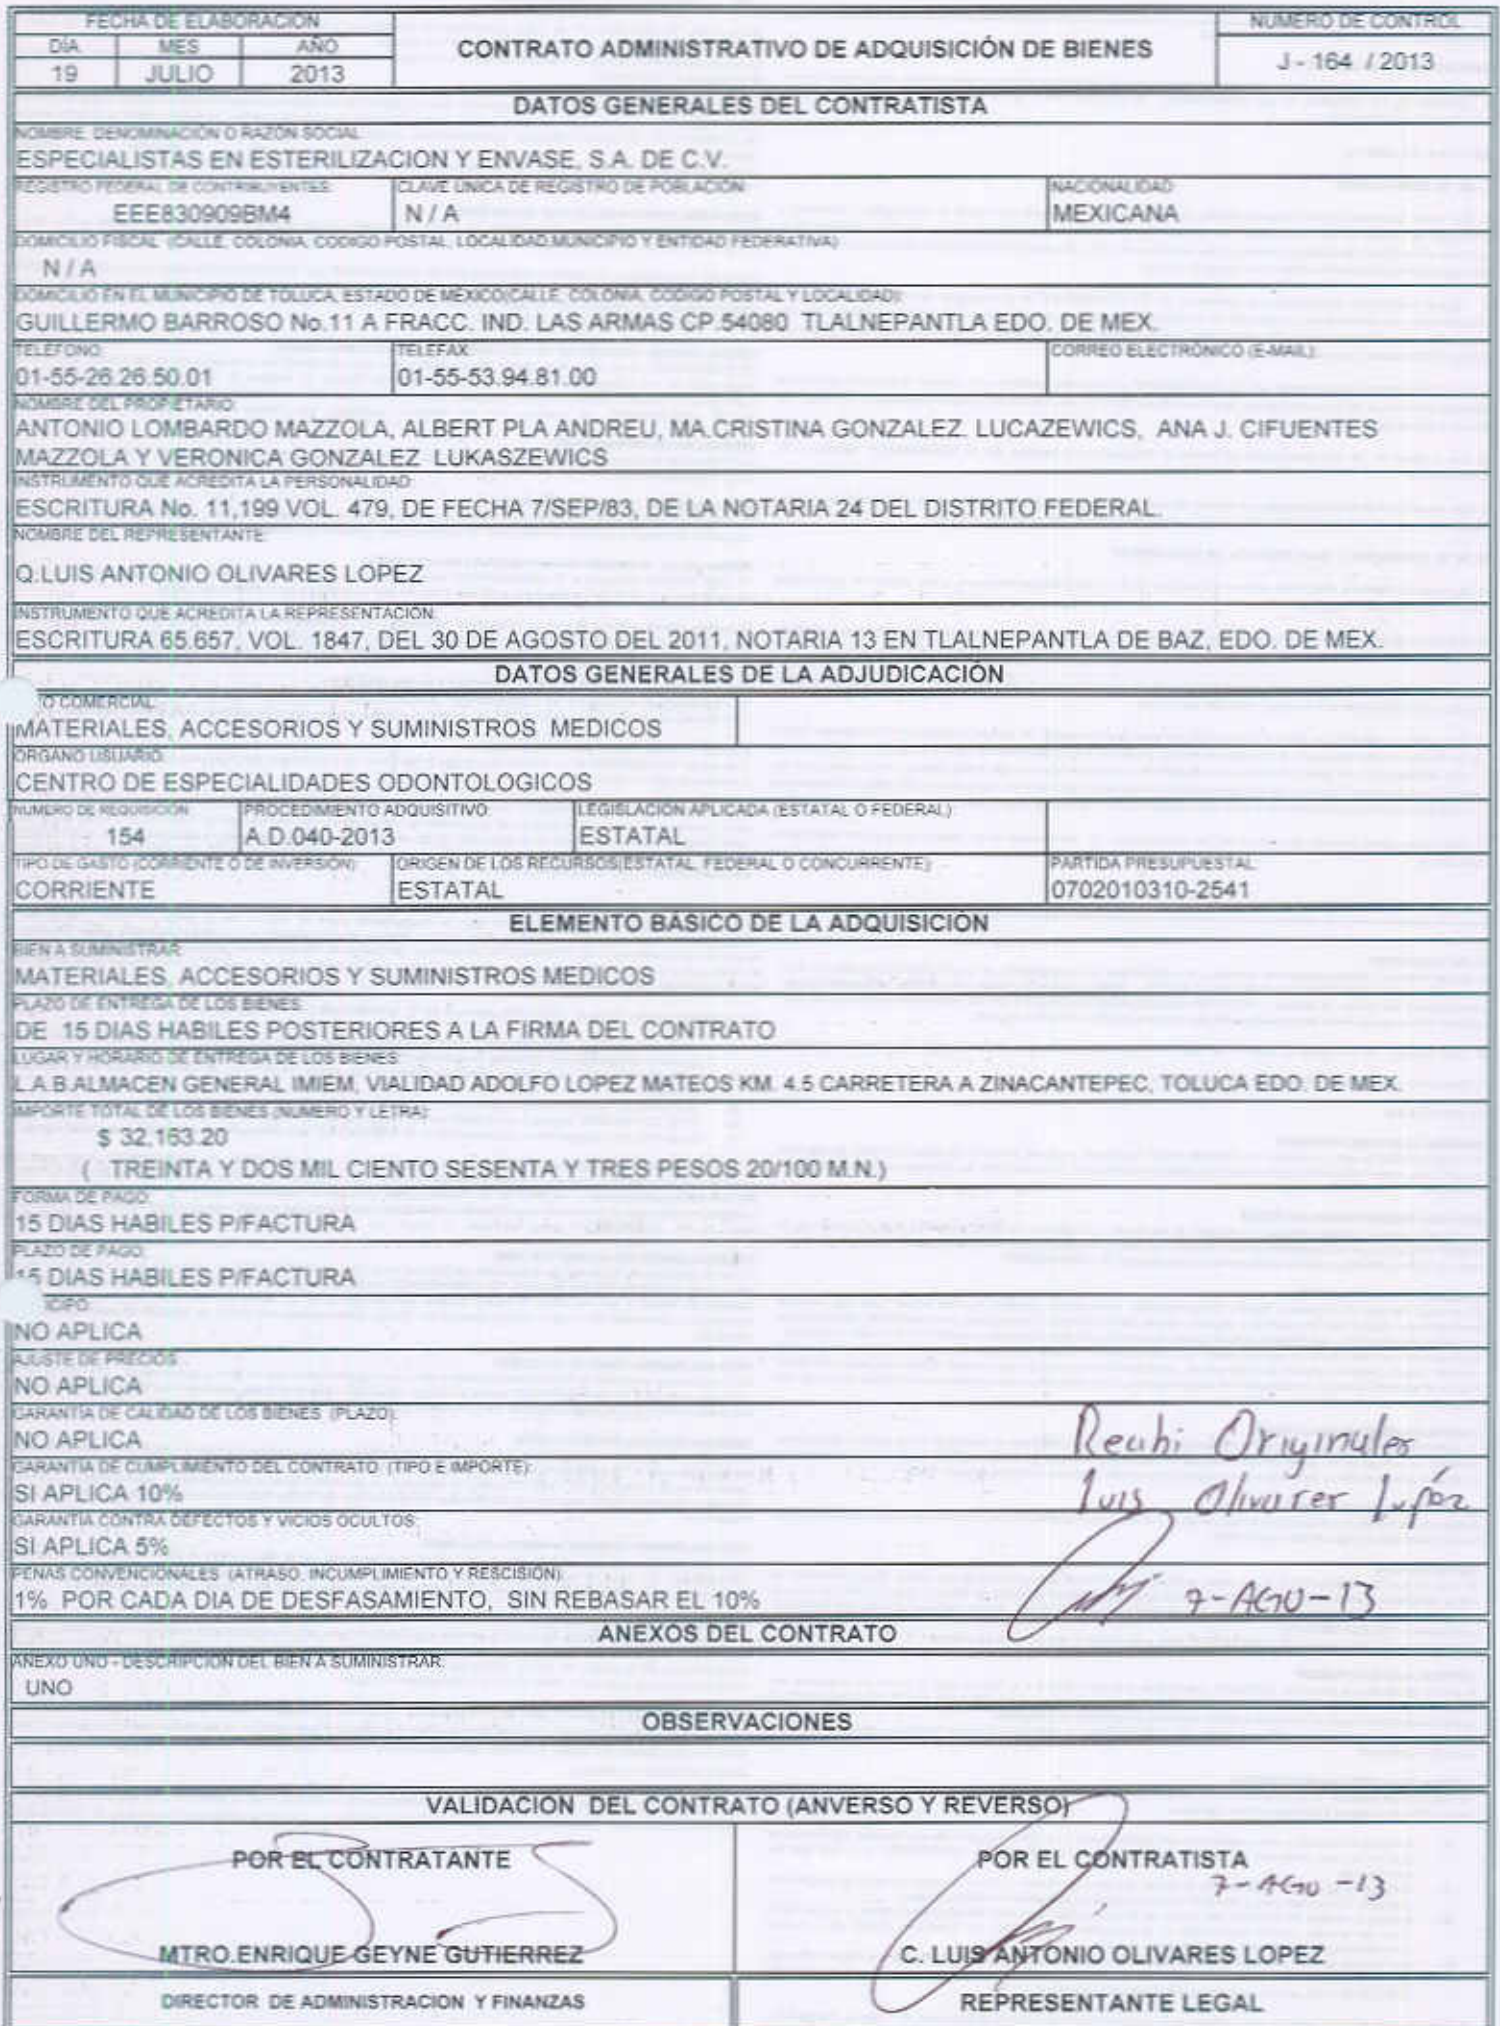 FECHA DE ELABORACIÓN
DÍA MES AÑO
19 JULIO 2013
CONTRATO ADMINISTRATIVO DE ADQUISICIÓN DE BIENES
NUMERO DE CONTROL
J - 164 / 2013
DATOS GENERALES DEL CONTRATISTA
NOMBRE, DENOMINACIÓN O RAZÓN SOCIAL
ESPECIALISTAS EN ESTERILIZACION Y ENVASE, S.A. DE C.V.
REGISTRO FEDERAL DE CONTRIBUYENTES: CLAVE UNICA DE REGISTRO DE POBLACIÓN: NACIONALIDAD:
EEE830909BM4 N / A MEXICANA
DOMICILIO FISCAL (CALLE, COLONIA, CODIGO POSTAL, LOCALIDAD,MUNICIPIO Y ENTIDAD FEDERATIVA)
N / A
DOMICILIO EN EL MUNICIPIO DE TOLUCA, ESTADO DE MÉXICO(CALLE, COLONIA, CODIGO POSTAL Y LOCALIDAD):
GUILLERMO BARROSO No.11 A FRACC. IND. LAS ARMAS CP.54080 TLALNEPANTLA EDO. DE MEX.
TELÉFONO: TELEFAX: CORREO ELECTRÓNICO (E-MAIL):
01-55-26.26.50.01 01-55-53.94.81.00
NOMBRE DEL PROPIETARIO:
ANTONIO LOMBARDO MAZZOLA, ALBERT PLA ANDREU, MA.CRISTINA GONZALEZ. LUCAZEWICS, ANA J. CIFUENTES
MAZZOLA Y VERONICA GONZALEZ LUKASZEWICS
INSTRUMENTO QUE ACREDITA LA PERSONALIDAD:
ESCRITURA No. 11,199 VOL. 479, DE FECHA 7/SEP/83, DE LA NOTARIA 24 DEL DISTRITO FEDERAL.
NOMBRE DEL REPRESENTANTE:
Q.LUIS ANTONIO OLIVARES LOPEZ
INSTRUMENTO QUE ACREDITA LA REPRESENTACIÓN:
ESCRITURA 65.657, VOL. 1847, DEL 30 DE AGOSTO DEL 2011, NOTARIA 13 EN TLALNEPANTLA DE BAZ, EDO. DE MEX.
DATOS GENERALES DE LA ADJUDICACIÓN
COMERCIAL:
MATERIALES, ACCESORIOS Y SUMINISTROS MEDICOS
ORGANO USUARIO:
CENTRO DE ESPECIALIDADES ODONTOLOGICOS
NUMERO DE REQUISICIÓN PROCEDIMIENTO ADQUISITIVO: LEGISLACION APLICADA (ESTATAL O FEDERAL):
154 A.D.040-2013 ESTATAL
TIPO DE GASTO (CORRIENTE O DE INVERSIÓN): ORIGEN DE LOS RECURSOS(ESTATAL, FEDERAL O CONCURRENTE): PARTIDA PRESUPUESTAL
CORRIENTE ESTATAL 0702010310-2541
ELEMENTO BÁSICO DE LA ADQUISICIÓN
BIEN A SUMINISTRAR:
MATERIALES, ACCESORIOS Y SUMINISTROS MEDICOS
PLAZO DE ENTREGA DE LOS BIENES:
DE 15 DIAS HABILES POSTERIORES A LA FIRMA DEL CONTRATO
LUGAR Y HORARIO DE ENTREGA DE LOS BIENES:
L.A.B.ALMACEN GENERAL IMIEM, VIALIDAD ADOLFO LOPEZ MATEOS KM. 4.5 CARRETERA A ZINACANTEPEC, TOLUCA EDO. DE MEX.
IMPORTE TOTAL DE LOS BIENES (NUMERO Y LETRA):
$ 32,163.20
( TREINTA Y DOS MIL CIENTO SESENTA Y TRES PESOS 20/100 M.N.)
FORMA DE PAGO:
15 DIAS HABILES P/FACTURA
PLAZO DE PAGO:
15 DIAS HABILES P/FACTURA
NO APLICA
AJUSTE DE PRECIOS:
NO APLICA
GARANTIA DE CALIDAD DE LOS BIENES (PLAZO):
NO APLICA
GARANTIA DE CUMPLIMIENTO DEL CONTRATO (TIPO E IMPORTE):
SI APLICA 10%
GARANTÍA CONTRA DEFECTOS Y VICIOS OCULTOS:
SI APLICA 5%
Recibi Originales
Luis Olivares López
7-AGO-13
PENAS CONVENCIONALES (ATRASO, INCUMPLIMIENTO Y RESCISIÓN):
1% POR CADA DIA DE DESFASAMIENTO, SIN REBASAR EL 10%
ANEXOS DEL CONTRATO
ANEXO UNO - DESCRIPCION DEL BIEN A SUMINISTRAR:
UNO
OBSERVACIONES
VALIDACION DEL CONTRATO (ANVERSO Y REVERSO)
POR EL CONTRATANTE
MTRO.ENRIQUE GEYNE GUTIERREZ
DIRECTOR DE ADMINISTRACION Y FINANZAS
POR EL CONTRATISTA
7-AGO-13
C. LUIS ANTONIO OLIVARES LOPEZ
REPRESENTANTE LEGAL